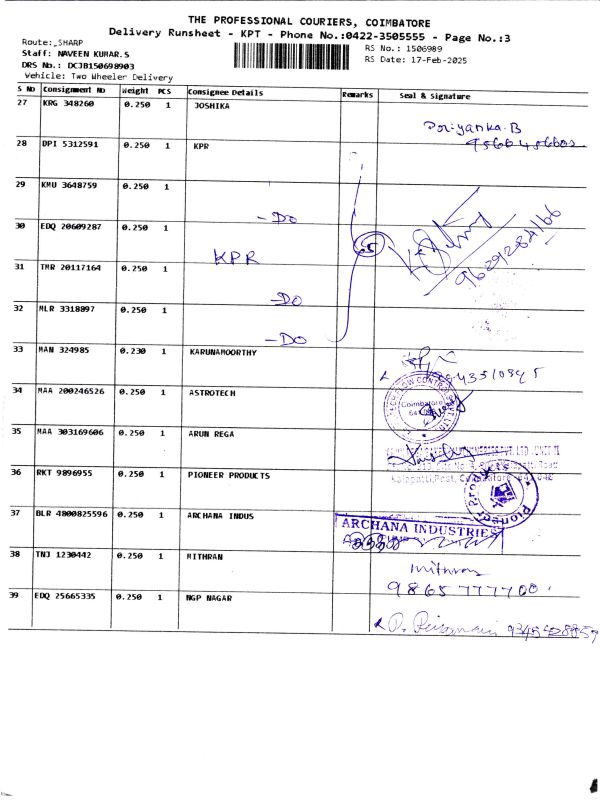 THE PROFESSIONAL COURIERS, COIMBATORE
Delivery Runsheet - KPT - Phone No.:0422-3505555 - Page No.:3
Route: SHARP
RS No.: 1506989
Staff: NAVEEN KUMAR.S
RS Date: 17-Feb-2025
DRS No.: DCJB150698903
Vehicle: Two Wheeler Delivery
S No Consignment No Weight PCS Consignee Details Remarks Seal & Signature
27 KRG 348260 0.250 1 JOSHIKA
Priyanka.B
28 DPI 5312591 0.250 1 KPR
29 KMU 3648759 0.250 1
-DO
30 EDQ 20609287 0.250 1
KPR
65
9629284166
31 TMR 20117164 0.250 1
-DO
32 MLR 3318897 0.250 1
-DO
33 MAN 324985 0.230 1 KARUNAMOORTHY
34 MAA 200246526 0.250 1 ASTROTECH
Coimbatore
35 MAA 303169606 0.250 1 ARUN REGA
36 RKT 9896955 0.250 1 PIONEER PRODUCTS
Pioneer Products
37 BLR 4800825596 0.250 1 ARCHANA INDUS
ARCHANA INDUSTRIES
38 TNJ 1230442 0.250 1 MITHRAN
mithran
9865777700
39 EDQ 25665335 0.250 1 NGP NAGAR